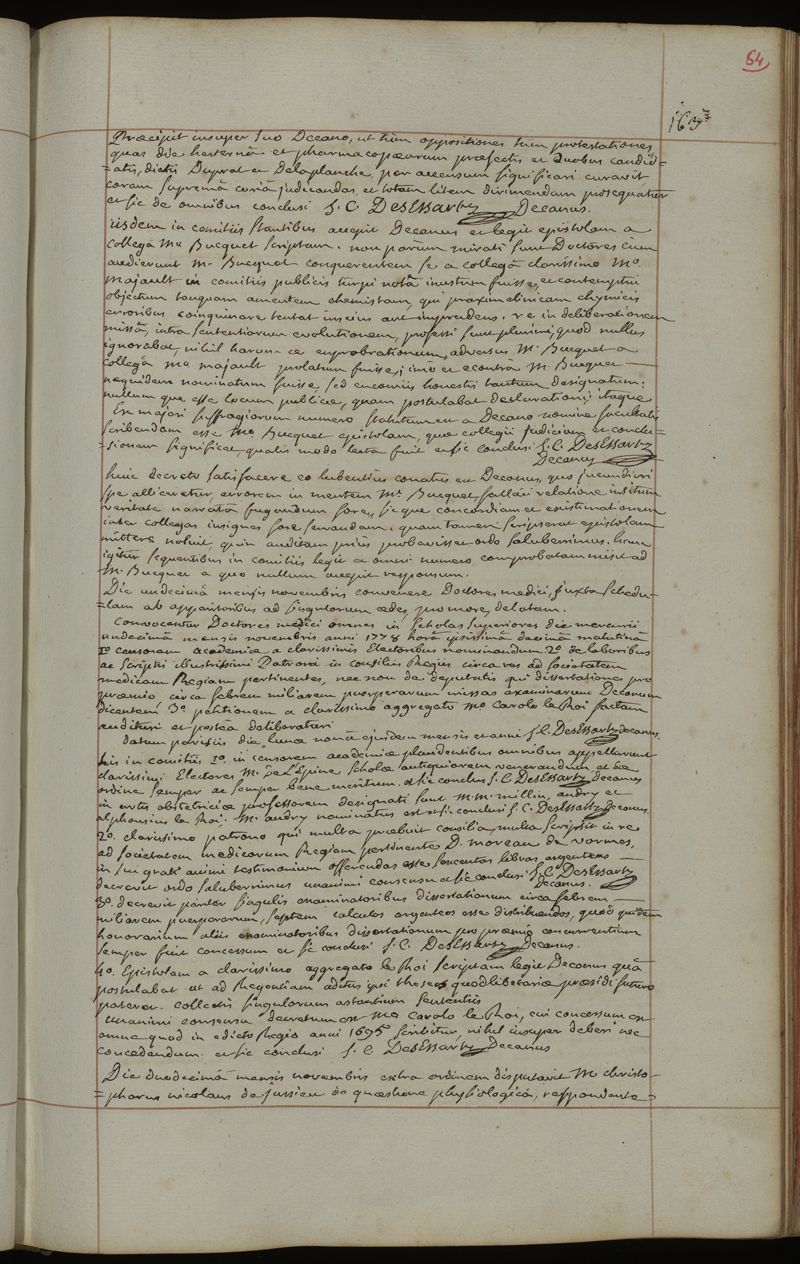 64
Præcipit insuper suo Decano, ut tùm oppositiones tùm protestationes
quas die hesternâ et pharmacopœorum præfectis et duobus candid=
=atis, dictis Duprat et Delaplanche, per accensum significari curavit
coram supremâ curiâ judicandas, et totam litem dirimendam prosequatur
et sic de omnibus conclusi J. C. DesEssartz Decanus.
iisdem in comitiis stantibus accepit Decanus et legit epistolam a
collega Mo Bucquet scriptam. non parùm mirati sunt Doctores cum
audierunt M. Bucquet conquerentem se a collegâ clarissimo Mo
majault in comitiis publicis turpi notâ inustum fuisse, et contemptui
objectum tanquam amentem chemistam, qui praxim clinicam chymicis
erroribus coinquinare tentat inscius aut imprudens. re in deliberationem
missâ, intra sententiarum evolutionem, professi sunt plurimi, quod nullus
ignorabat, nihil harum-ce exprobrationum adversus M. Bucquet a
collegâ Mo majault prolatum fuisse; imo et econtrà M. Bucquet
nequidem nominatum fuisse, sed encomiis honestis tantum designatum;
nullum que esse locum publicæ, quam postulabat declarationi; itaque
Ex majori suffragiorum numero statutum est a Decano nomine facultatis
scribendam esse Mo Bucquet epistolam, quæ collegii judicium et conclu=
=sionem significet, qualis modo lecta fuit et sic conclusi J. C. DesEssartz
Decanus
huic decreto satisfacere eo lubentius conatus est Decanus, quo jucundiori
spe alliceretur, errorem in mentem Mi Bucquet fallaci relatione insitum
veritate narratâ fugandum fore, sic que concordiam et existimationem
inter collegas insignes fore servandam. quam tamen scripserat epistolam
mittere noluit, quin auditam priùs probavisset ordo saluberrimus. hanc
igitur sequentibus in comitiis legit et omni numero comprobatam misit ad
M. Bucquet a quo nullum accepit responsum.
Die undecimâ mensis novembris convenere Doctores medici, juxta schedu=
=lam ab apparitoribus ad singulorum ædes, pro more, delatam.
Convocentur Doctores medici omnes in scholas superiores die mercurii
undecimâ mensis novembris anni 1778 horâ ipsissimâ decimâ matutinâ
1o censorem academiæ a clarissimis Electoribus nominandum. 2o de laboribus
ac scriptis illustrissimi Patroni in consiliis Regiis circa res ad societatem
medicam Regiam pertinentes, nec non de deputatis qui dissertationes pro
præmio circa febrem miliarem puerperarum missas examinarunt Decanum
dicentem 3o petitionem a clarissimo aggregato Mo Carolo le Roi factam
audituri et posteà deliberaturi
datum parisiis die lunæ nonâ ejusdem mensis et anni J. C. DesEssartz decanus
his in comitiis 1o. in censorem academiæ plaudentibus omnibus appellarunt
clarissimi Electores M. De L'Epine scholæ antiquiorem venerandum et de
ordine semper ac semper bene meritum. et sic conclusi J. C. DesEssartz decanus
in artis obstetriciæ professorem designati sunt M.M. millin, andry et
alphonsius le Roi. M. andry nominatus est et sic conclusi J. C. DesEssartz decanus.
2o. clarissimo patrono qui multa præbuit consilia, multa scripsit in re
ad societatem medicorum Regiam pertinente D. moreau de vormes,
in sui grati animi testimonium offerendas esse libras argenteas
decrevit ordo saluberrimus unanimi consensu et sic conclusi J. C. DesEssartz
Decanus.
3o. decrevit pariter singulis examinatoribus dissertationum circa febrem
miliarem puerperarum, septem calculos argenteos esse distribuendos, quod quidem
honorarium aliis examinatoribus dissertationum pro præmio concurrentium
semper fuit concessum et sic conclusi J. C. DesEssartz Decanus.
4o. Epistolam a clarissimo aggregato le Roi scriptam legit Decanus quâ
postulabat ut ad Regentiam aditus ipsi theseos quodlibetariæ præsidi futuro
pateret. collectis singulorum astantium sententiis
unanimi consensu decretum est Mo Carolo le Roi, cui concessum est
omne quod in edicto Regio anni 1695o scribitur, nihil insuper deberi nec
concedendum. et sic conclusi J. C. DesEssartz Decanus
Die duodecimâ mensis novembris extra ordinem disputavit M. christo=
=phorus nicolaus de jussieu de quæstione physiologicâ, respondente